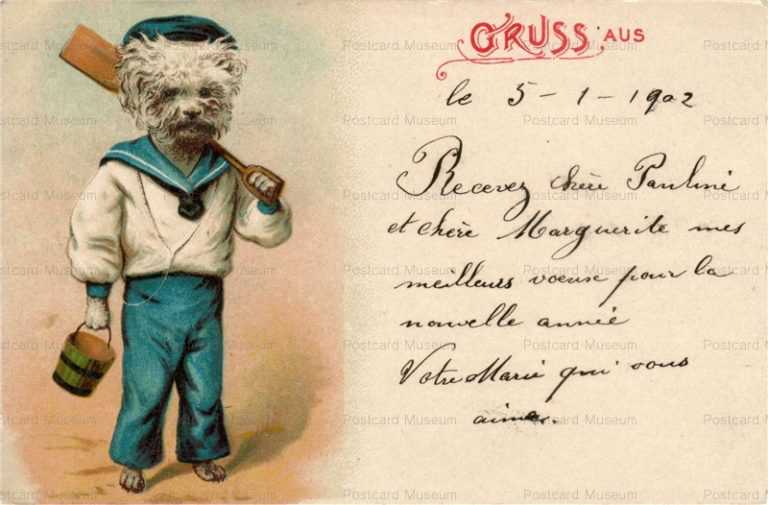 GRUSS AUS
le 5-1-1902
Recevez chère Pauline
et chère Marguerite mes
meilleurs voeux pour la
nouvelle année
Votre Marie qui vous
aime.
Postcard Museum